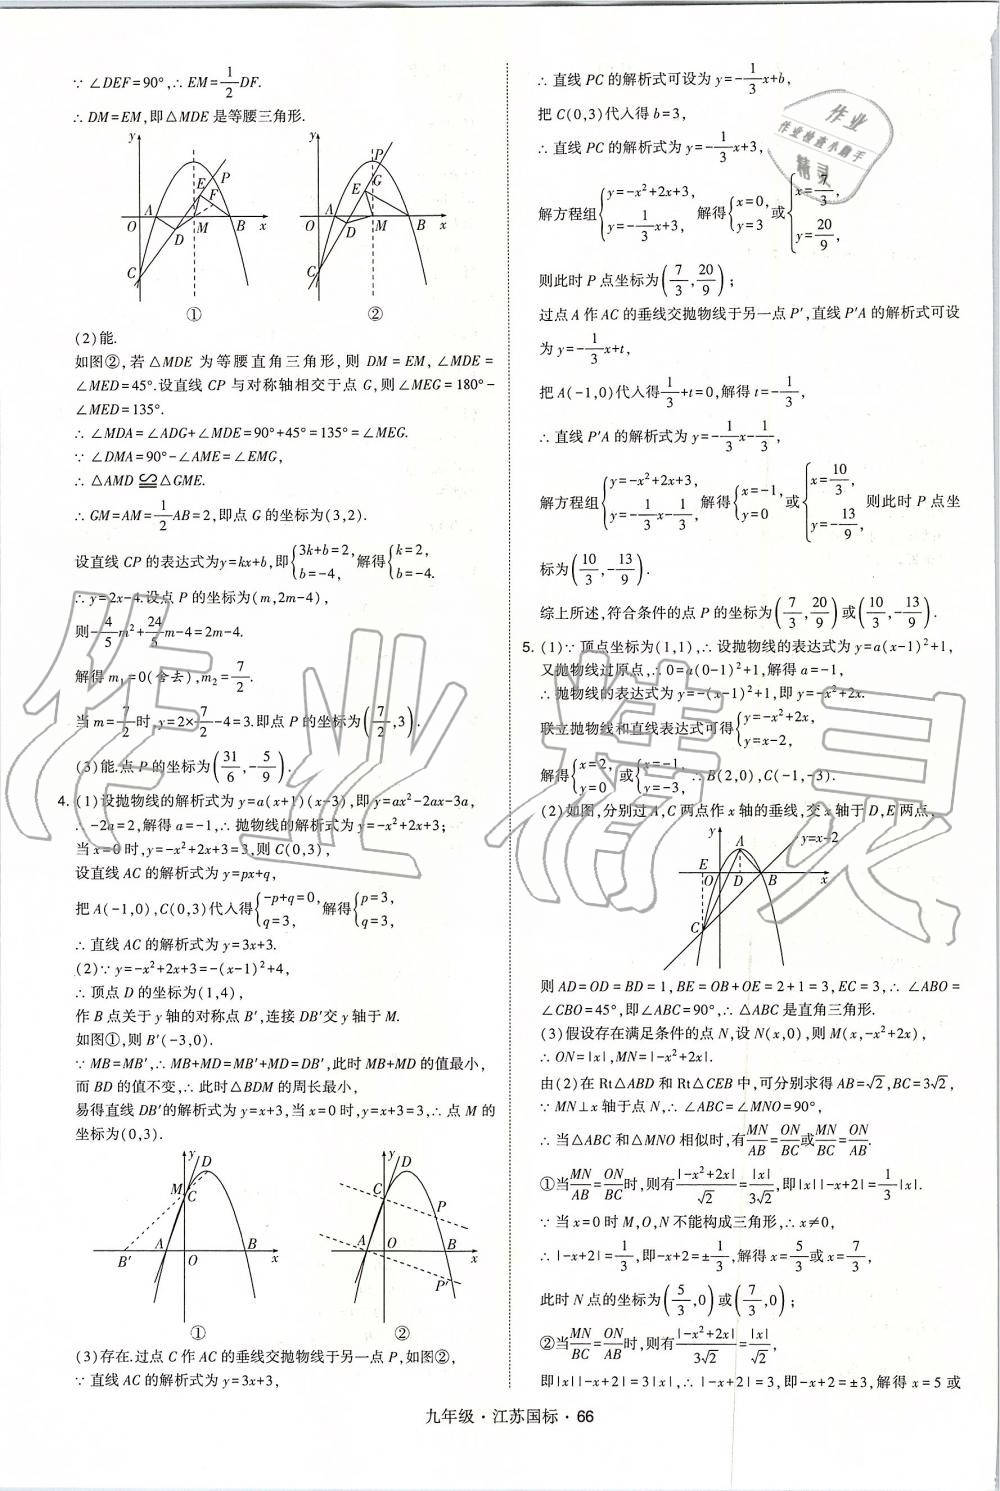 ∵ ∠DEF=90°,∴ EM=1/2 DF.
∴ DM=EM,即△MDE 是等腰三角形.
y
E
P
F
A
O
M
B
x
D
C
①
y
P
G
E
A
O
M
B
x
D
C
②
(2)能.
如图②,若△MDE 为等腰直角三角形,则 DM=EM,∠MDE=
∠MED=45°.设直线 CP 与对称轴相交于点 G,则∠MEG=180°-
∠MED=135°.
∴ ∠MDA=∠ADG+∠MDE=90°+45°=135°=∠MEG.
∵ ∠DMA=90°-∠AME=∠EMG,
∴ △AMD≌△GME.
∴ GM=AM=1/2 AB=2,即点 G 的坐标为(3,2).
设直线 CP 的表达式为y=kx+b,即{3k+b=2, b=-4, 解得{k=2, b=-4.
∴ y=2x-4.设点 P 的坐标为(m,2m-4),
则-4/5 m²+24/5 m-4=2m-4.
解得 m₁=0(舍去),m₂=7/2.
当 m=7/2时,y=2×7/2-4=3.即点 P 的坐标为(7/2,3).
(3)能.点 P 的坐标为(31/6,-5/9).
4. (1)设抛物线的解析式为 y=a(x+1)(x-3),即 y=ax²-2ax-3a,
∴ -2a=2,解得 a=-1,∴ 抛物线的解析式为 y=-x²+2x+3;
当 x=0 时,y=-x²+2x+3=3,则 C(0,3),
设直线 AC 的解析式为 y=px+q,
把 A(-1,0),C(0,3)代入得{-p+q=0, q=3, 解得{p=3, q=3,
∴ 直线 AC 的解析式为 y=3x+3.
(2)∵ y=-x²+2x+3=-(x-1)²+4,
∴ 顶点 D 的坐标为(1,4),
作 B 点关于 y 轴的对称点 B′,连接 DB′交 y 轴于 M.
如图①,则 B′(-3,0).
∵ MB=MB′,∴ MB+MD=MB′+MD=DB′,此时 MB+MD 的值最小,
而 BD 的值不变,∴ 此时△BDM 的周长最小,
易得直线 DB′的解析式为 y=x+3,当 x=0 时,y=x+3=3,∴ 点 M 的
坐标为(0,3).
y
D
M
C
B′
A
O
B
x
①
y
D
C
P
A
O
B
x
P′
②
(3)存在.过点 C 作 AC 的垂线交抛物线于另一点 P,如图②,
∵ 直线 AC 的解析式为 y=3x+3,
∴ 直线 PC 的解析式可设为 y=-1/3 x+b,
把 C(0,3)代入得 b=3,
∴ 直线 PC 的解析式为 y=-1/3 x+3,
解方程组{y=-x²+2x+3, y=-1/3 x+3, 解得{x=0, y=3 或{x=7/3, y=20/9,
则此时 P 点坐标为(7/3,20/9);
过点 A 作 AC 的垂线交抛物线于另一点 P′,直线 P′A 的解析式可设
为 y=-1/3 x+t,
把 A(-1,0)代入得1/3+t=0,解得 t=-1/3,
∴ 直线 P′A 的解析式为 y=-1/3 x-1/3,
解方程组{y=-x²+2x+3, y=-1/3 x-1/3, 解得{x=-1, y=0 或{x=10/3, y=-13/9, 则此时 P 点坐
标为(10/3,-13/9).
综上所述,符合条件的点 P 的坐标为(7/3,20/9)或(10/3,-13/9).
5. (1)∵ 顶点坐标为(1,1),∴ 设抛物线的表达式为 y=a(x-1)²+1,
又抛物线过原点,∴ 0=a(0-1)²+1,解得 a=-1,
∴ 抛物线的表达式为 y=-(x-1)²+1,即 y=-x²+2x.
联立抛物线和直线表达式可得{y=-x²+2x, y=x-2,
解得{x=2, y=0 或{x=-1, y=-3, ∴ B(2,0),C(-1,-3).
(2)如图,分别过 A,C 两点作 x 轴的垂线,交 x 轴于 D,E 两点,
y
A
y=x-2
E
O
D
B
x
C
则 AD=OD=BD=1,BE=OB+OE=2+1=3,EC=3,∴ ∠ABO=
∠CBO=45°,即∠ABC=90°,∴ △ABC 是直角三角形.
(3)假设存在满足条件的点 N,设 N(x,0),则 M(x,-x²+2x),
∴ ON=|x|,MN=|-x²+2x|.
由(2)在 Rt△ABD 和 Rt△CEB 中,可分别求得 AB=√2,BC=3√2,
∵ MN⊥x 轴于点 N,∴ ∠ABC=∠MNO=90°,
∴ 当△ABC 和△MNO 相似时,有MN/AB=ON/BC或MN/BC=ON/AB.
①当MN/AB=ON/BC时,则有|-x²+2x|/√2=|x|/3√2,即|x||-x+2|=1/3|x|.
∵ 当 x=0 时 M,O,N 不能构成三角形,∴ x≠0,
∴ |-x+2|=1/3,即-x+2=±1/3,解得 x=5/3或 x=7/3,
此时 N 点的坐标为(5/3,0)或(7/3,0);
②当MN/BC=ON/AB时,则有|-x²+2x|/3√2=|x|/√2,
即|x||-x+2|=3|x|,∴ |-x+2|=3,即-x+2=±3,解得 x=5 或
九年级·江苏国标·66
作业
作业检查小助手
精灵
作业精灵